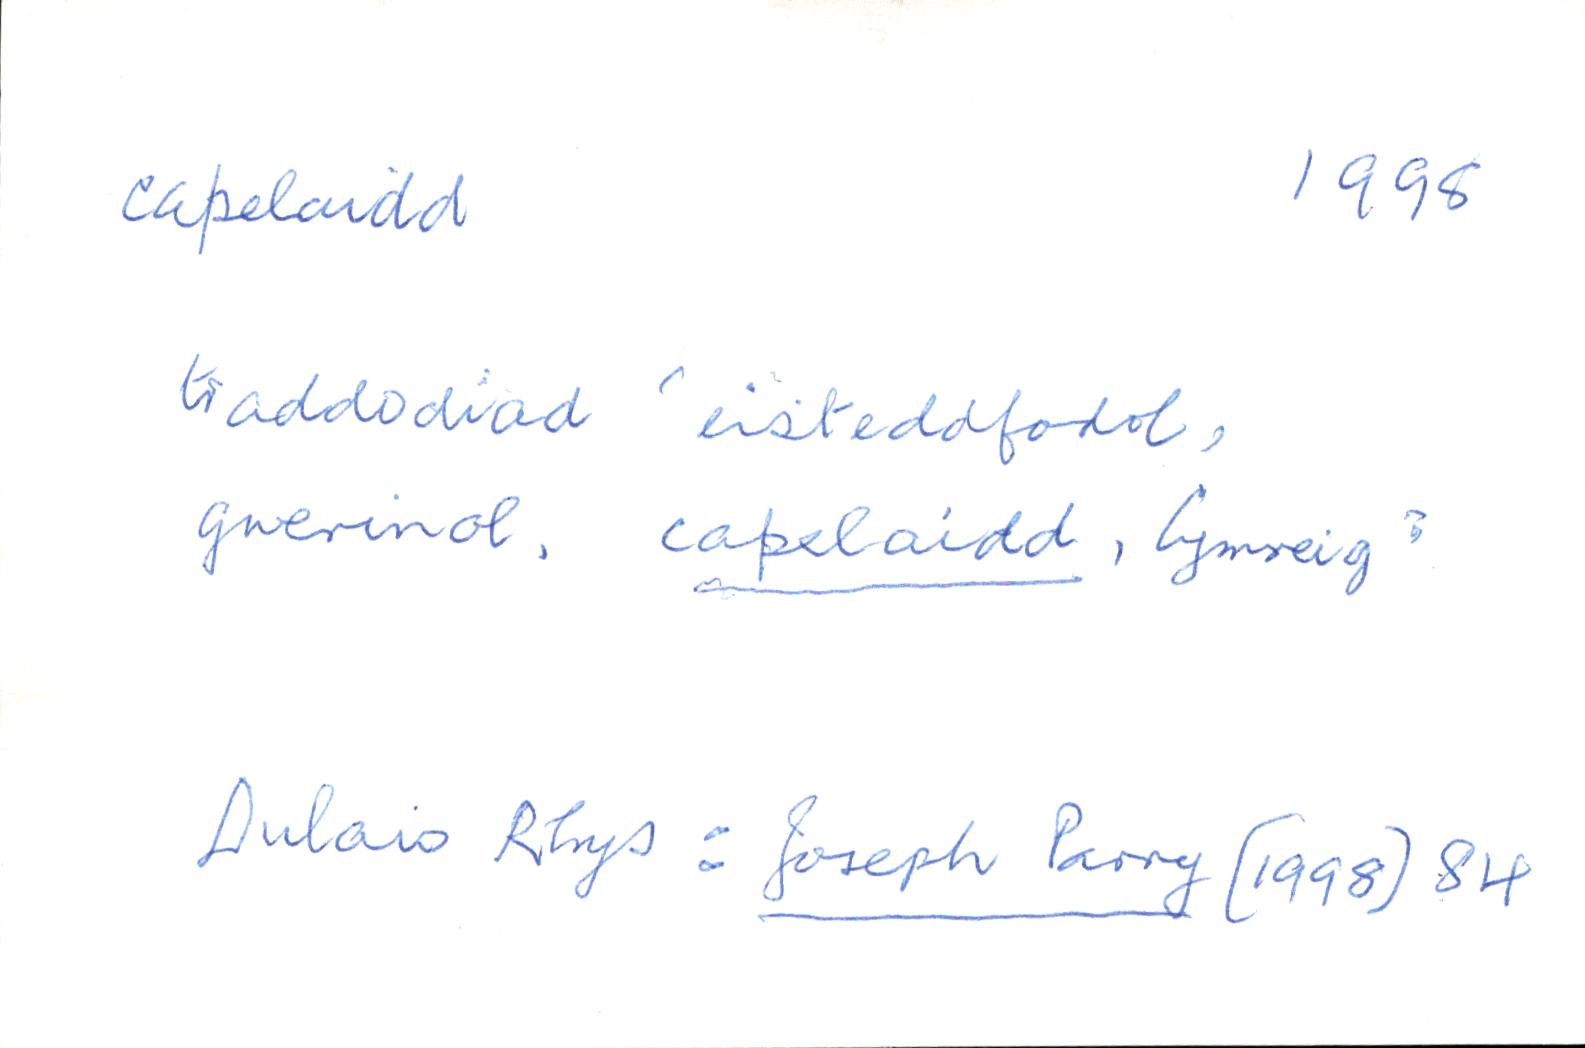 capelaidd 1998
traddodiad 'eisteddfodol,
gwerinol, capelaidd, Cymreig'
Dulais Rhys : Joseph Parry (1998) 84